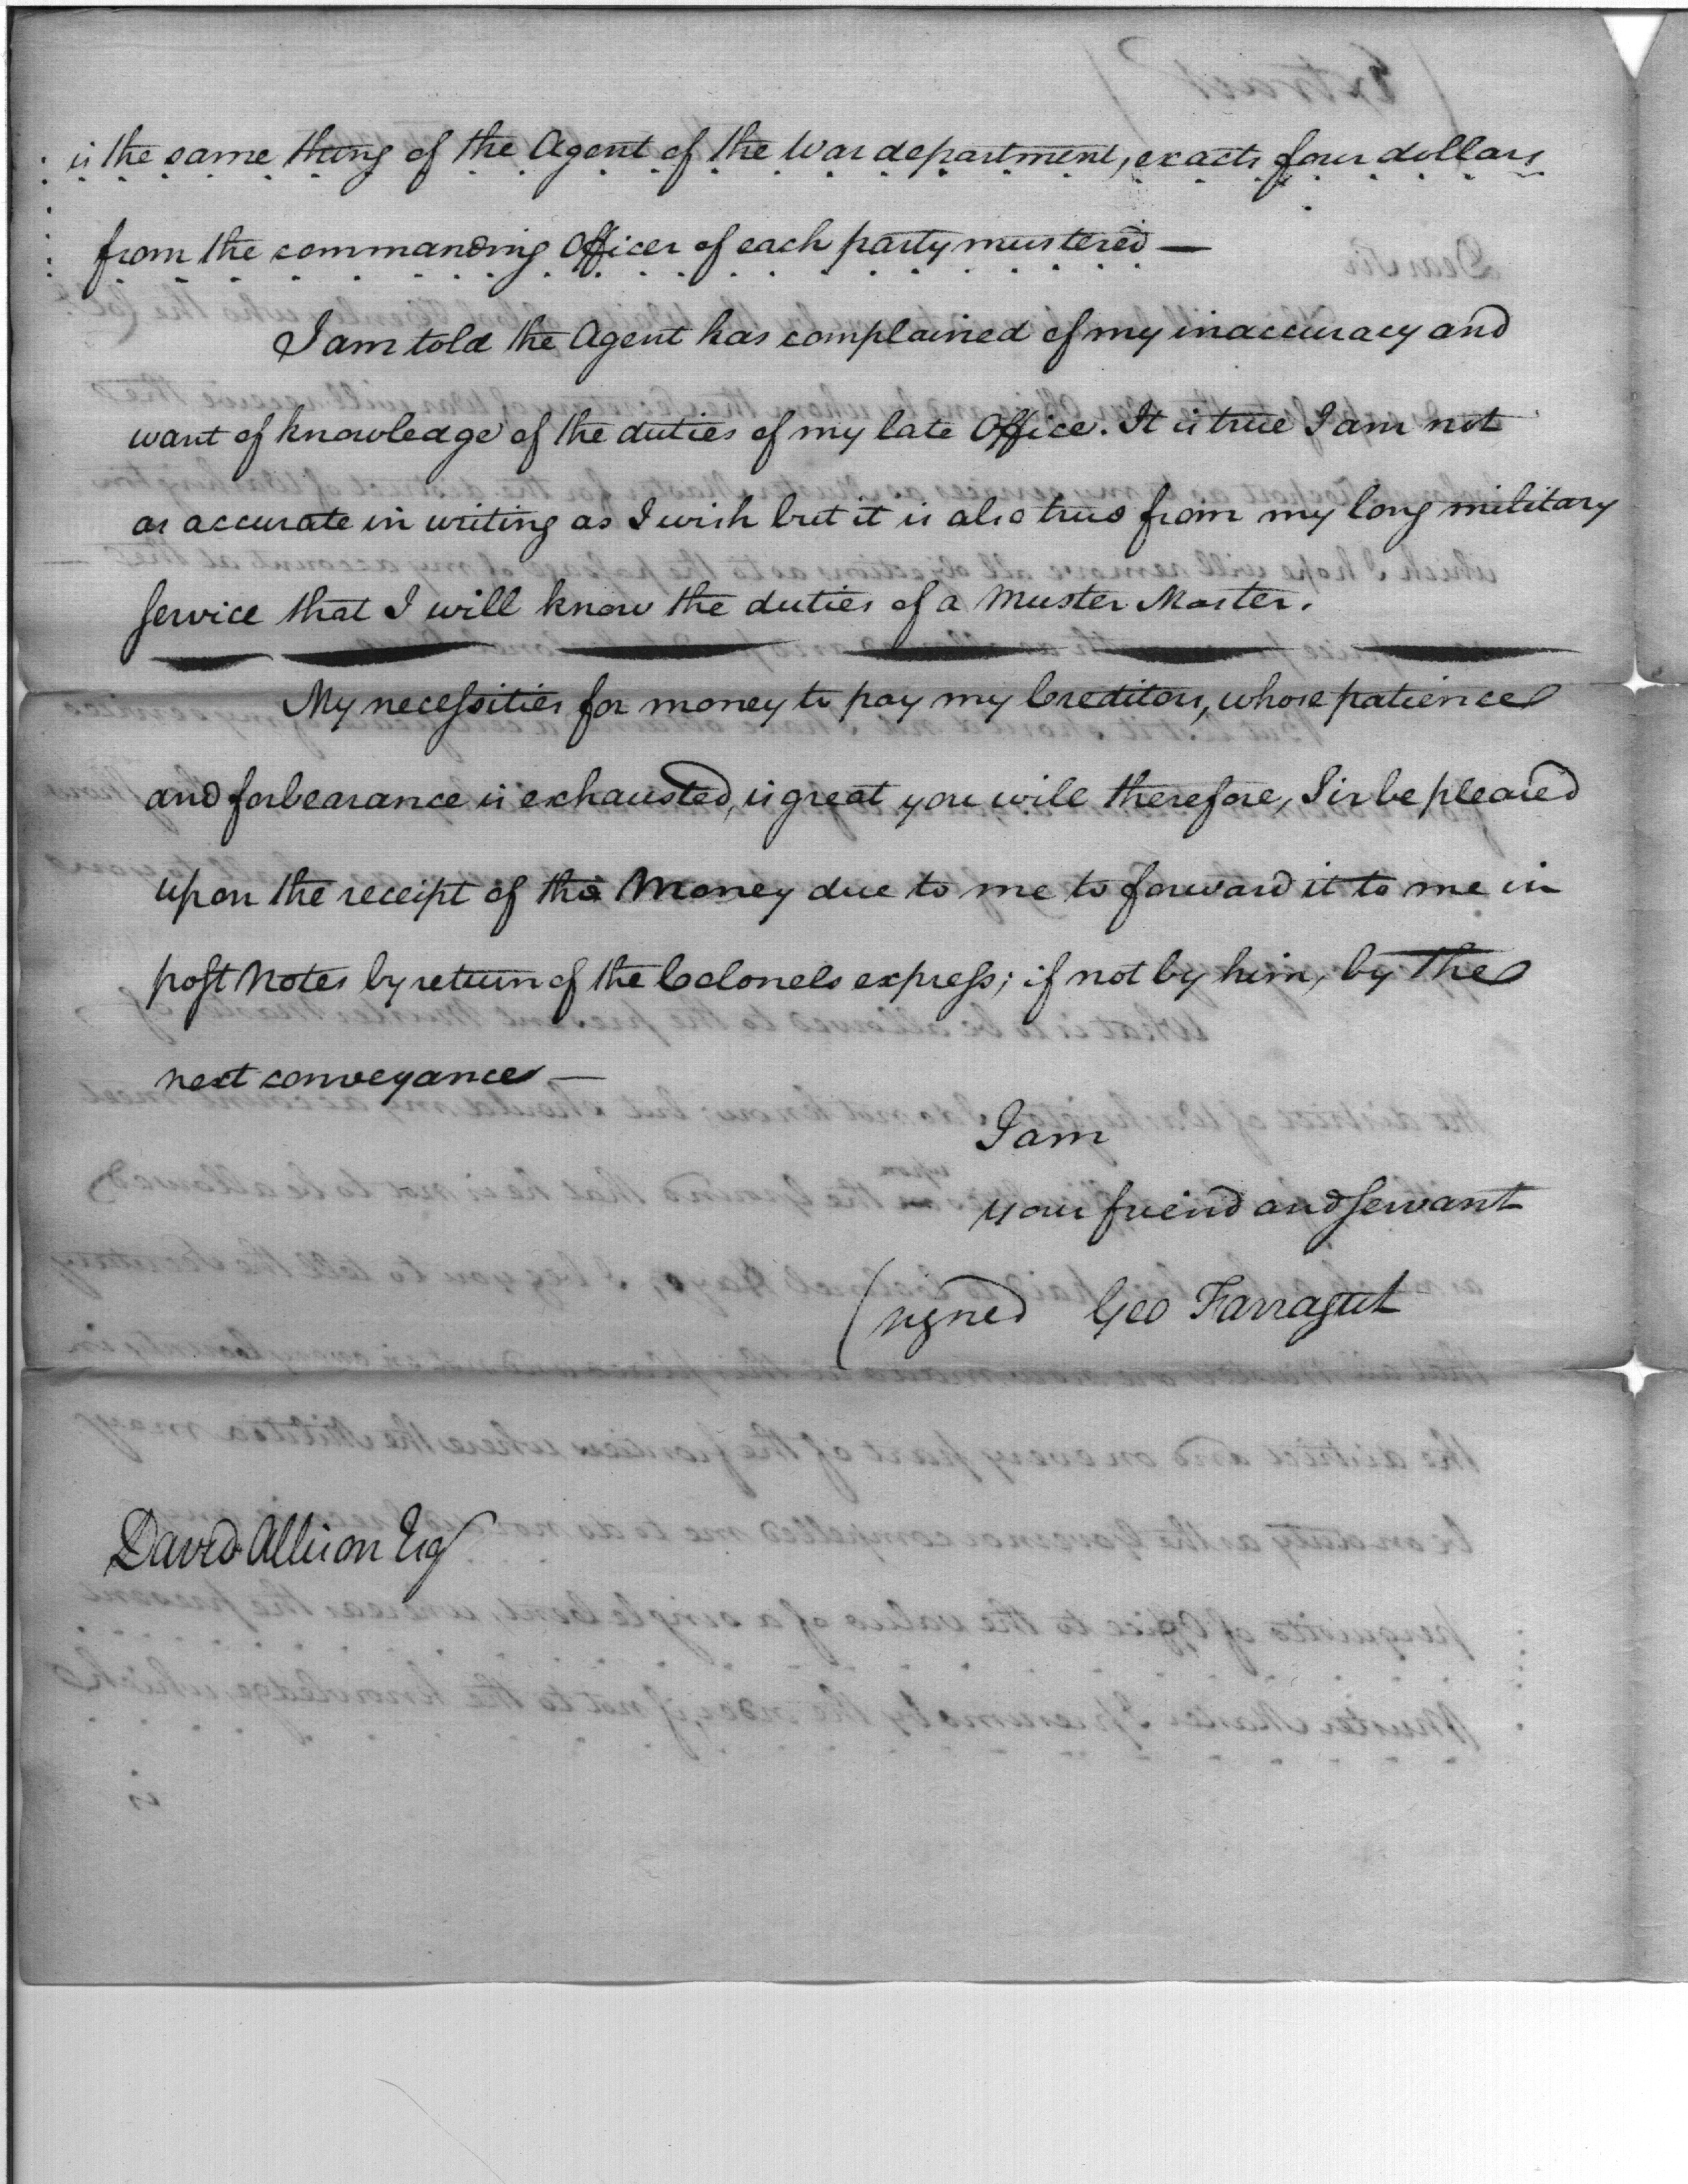 is the same thing of the Agent of the War department, exacts four dollars
from the commanding Officer of each party mustered —
I am told the Agent has complained of my inaccuracy and
want of knowledge of the duties of my late Office. It is true I am not
as accurate in writing as I wish but it is also true from my long military
service that I will know the duties of a Muster Master.
My necessities for money to pay my Creditors, whose patience
and forbearance is exhausted, is great you will therefore, Sir be pleased
upon the receipt of the Money due to me to forward it to me in
post Notes by return of the Colonels express; if not by him, by the
next conveyance —
I am
your friend and servant
(signed Geo Farragut
David Allison Esq